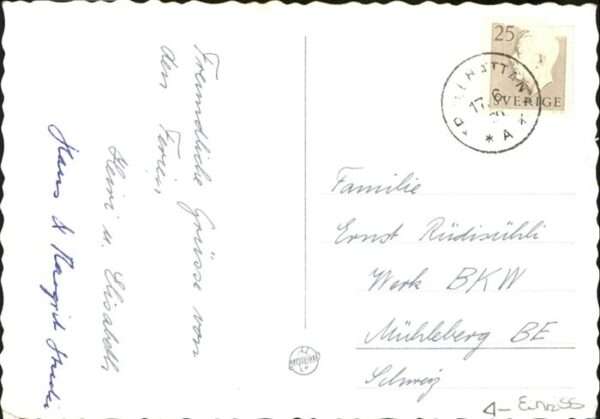 Freundliche Grüsse von
den Ferien,
Heini u. Elisabeth
Hans & Margrit
25
SVERIGE
17 6
* A *
Familie
Ernst Rüdisühli
Werk BKW
Mühleberg BE
Schweiz